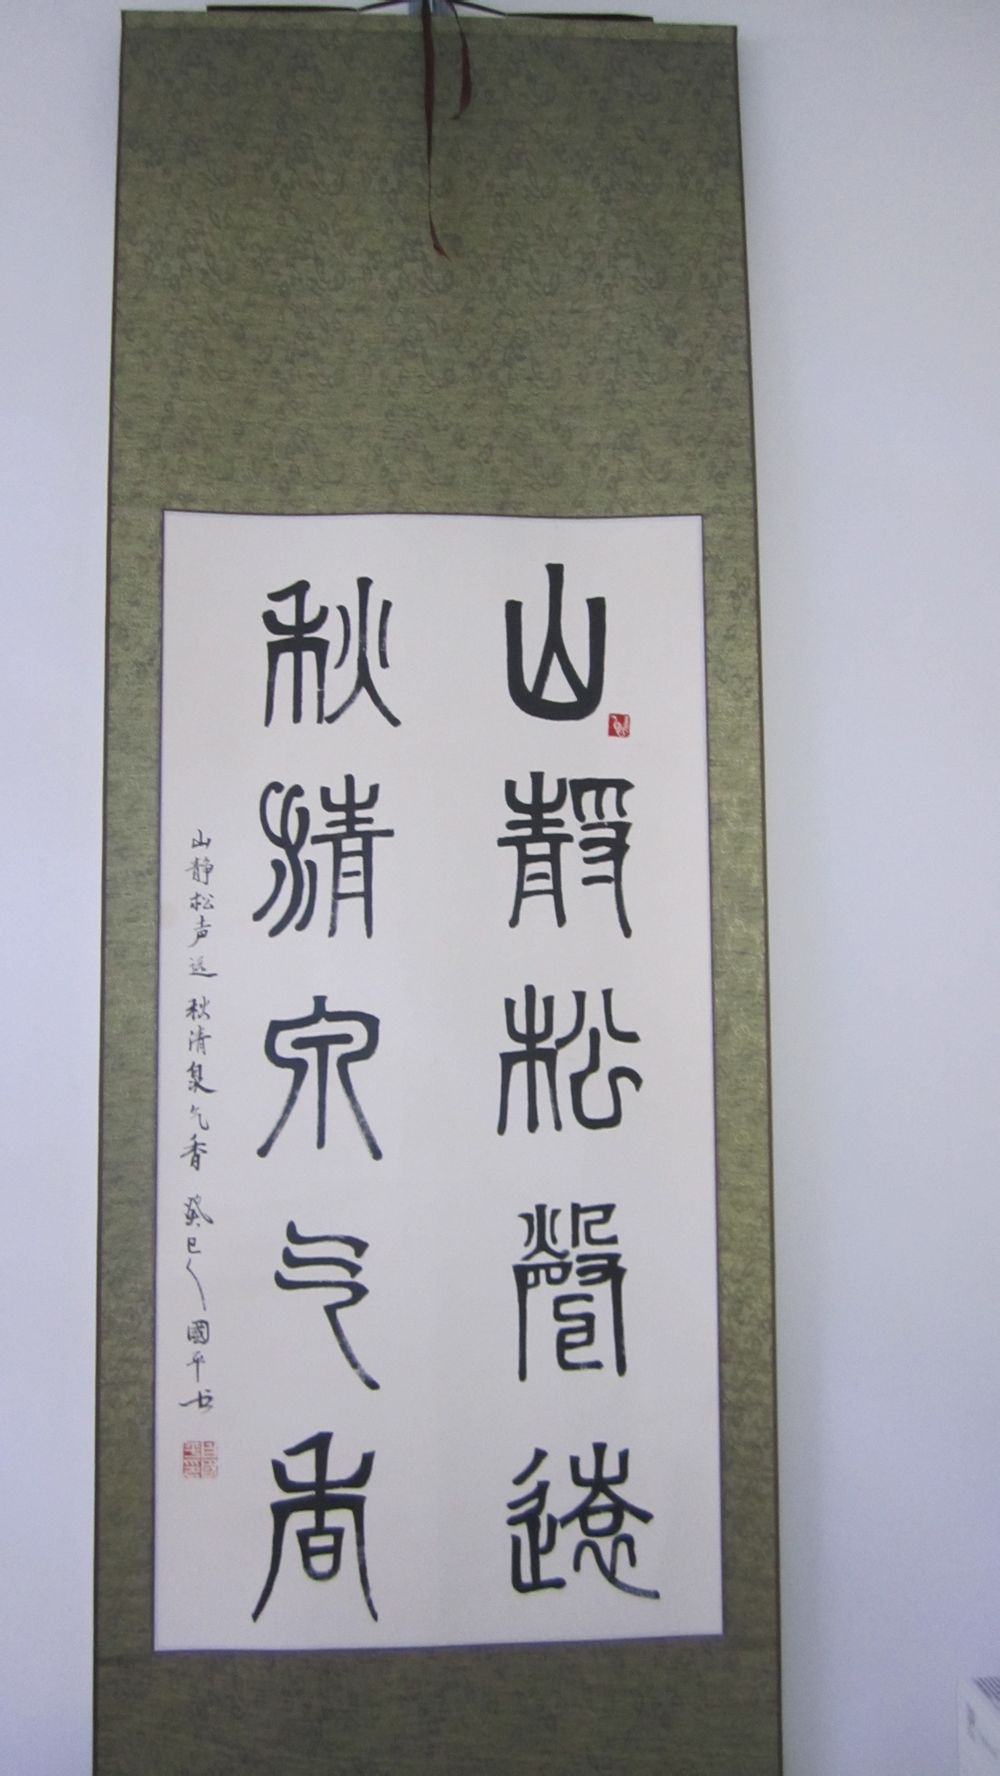 山靜松聲遠
秋清泉气香
山静松声远 秋清泉气香 癸巳 國平书